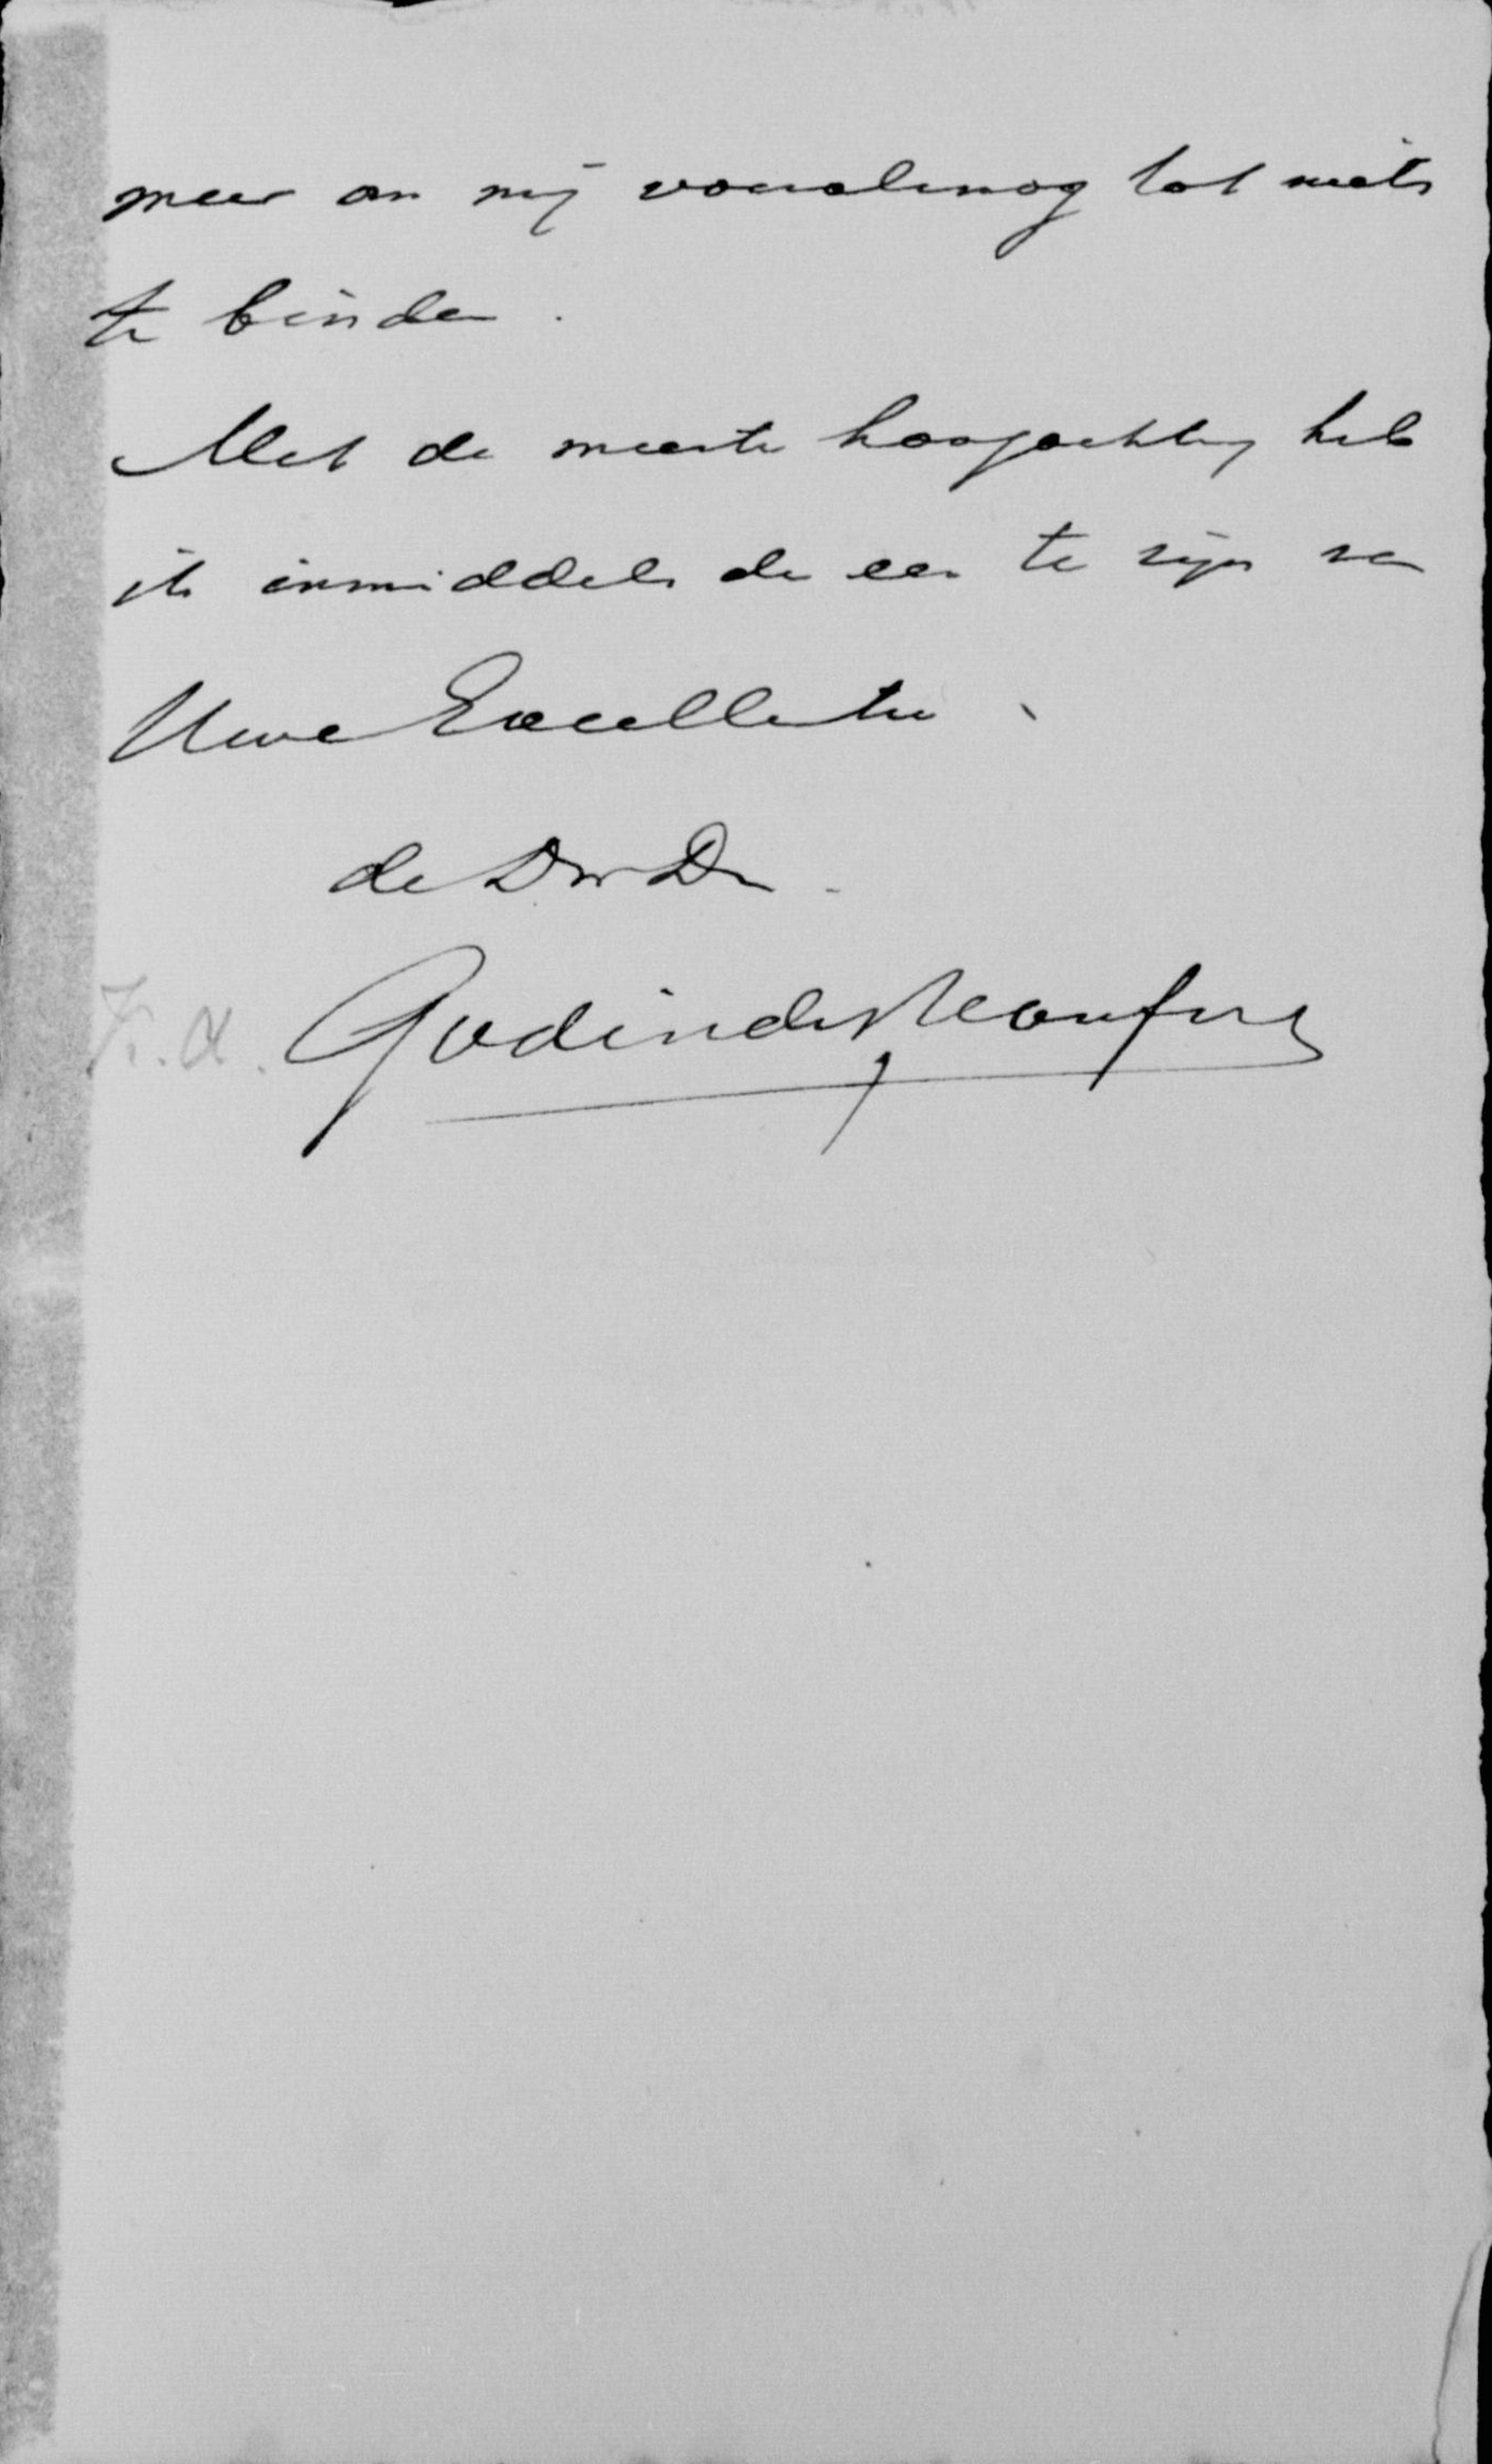 meer om mij vooralsnog tot niets
te binden.
Met de meeste hoogachting heb
ik inmiddels de eer te zijn van
Uwe Excellentie
de Dw Dr.
F. A. Godin de Beaufort